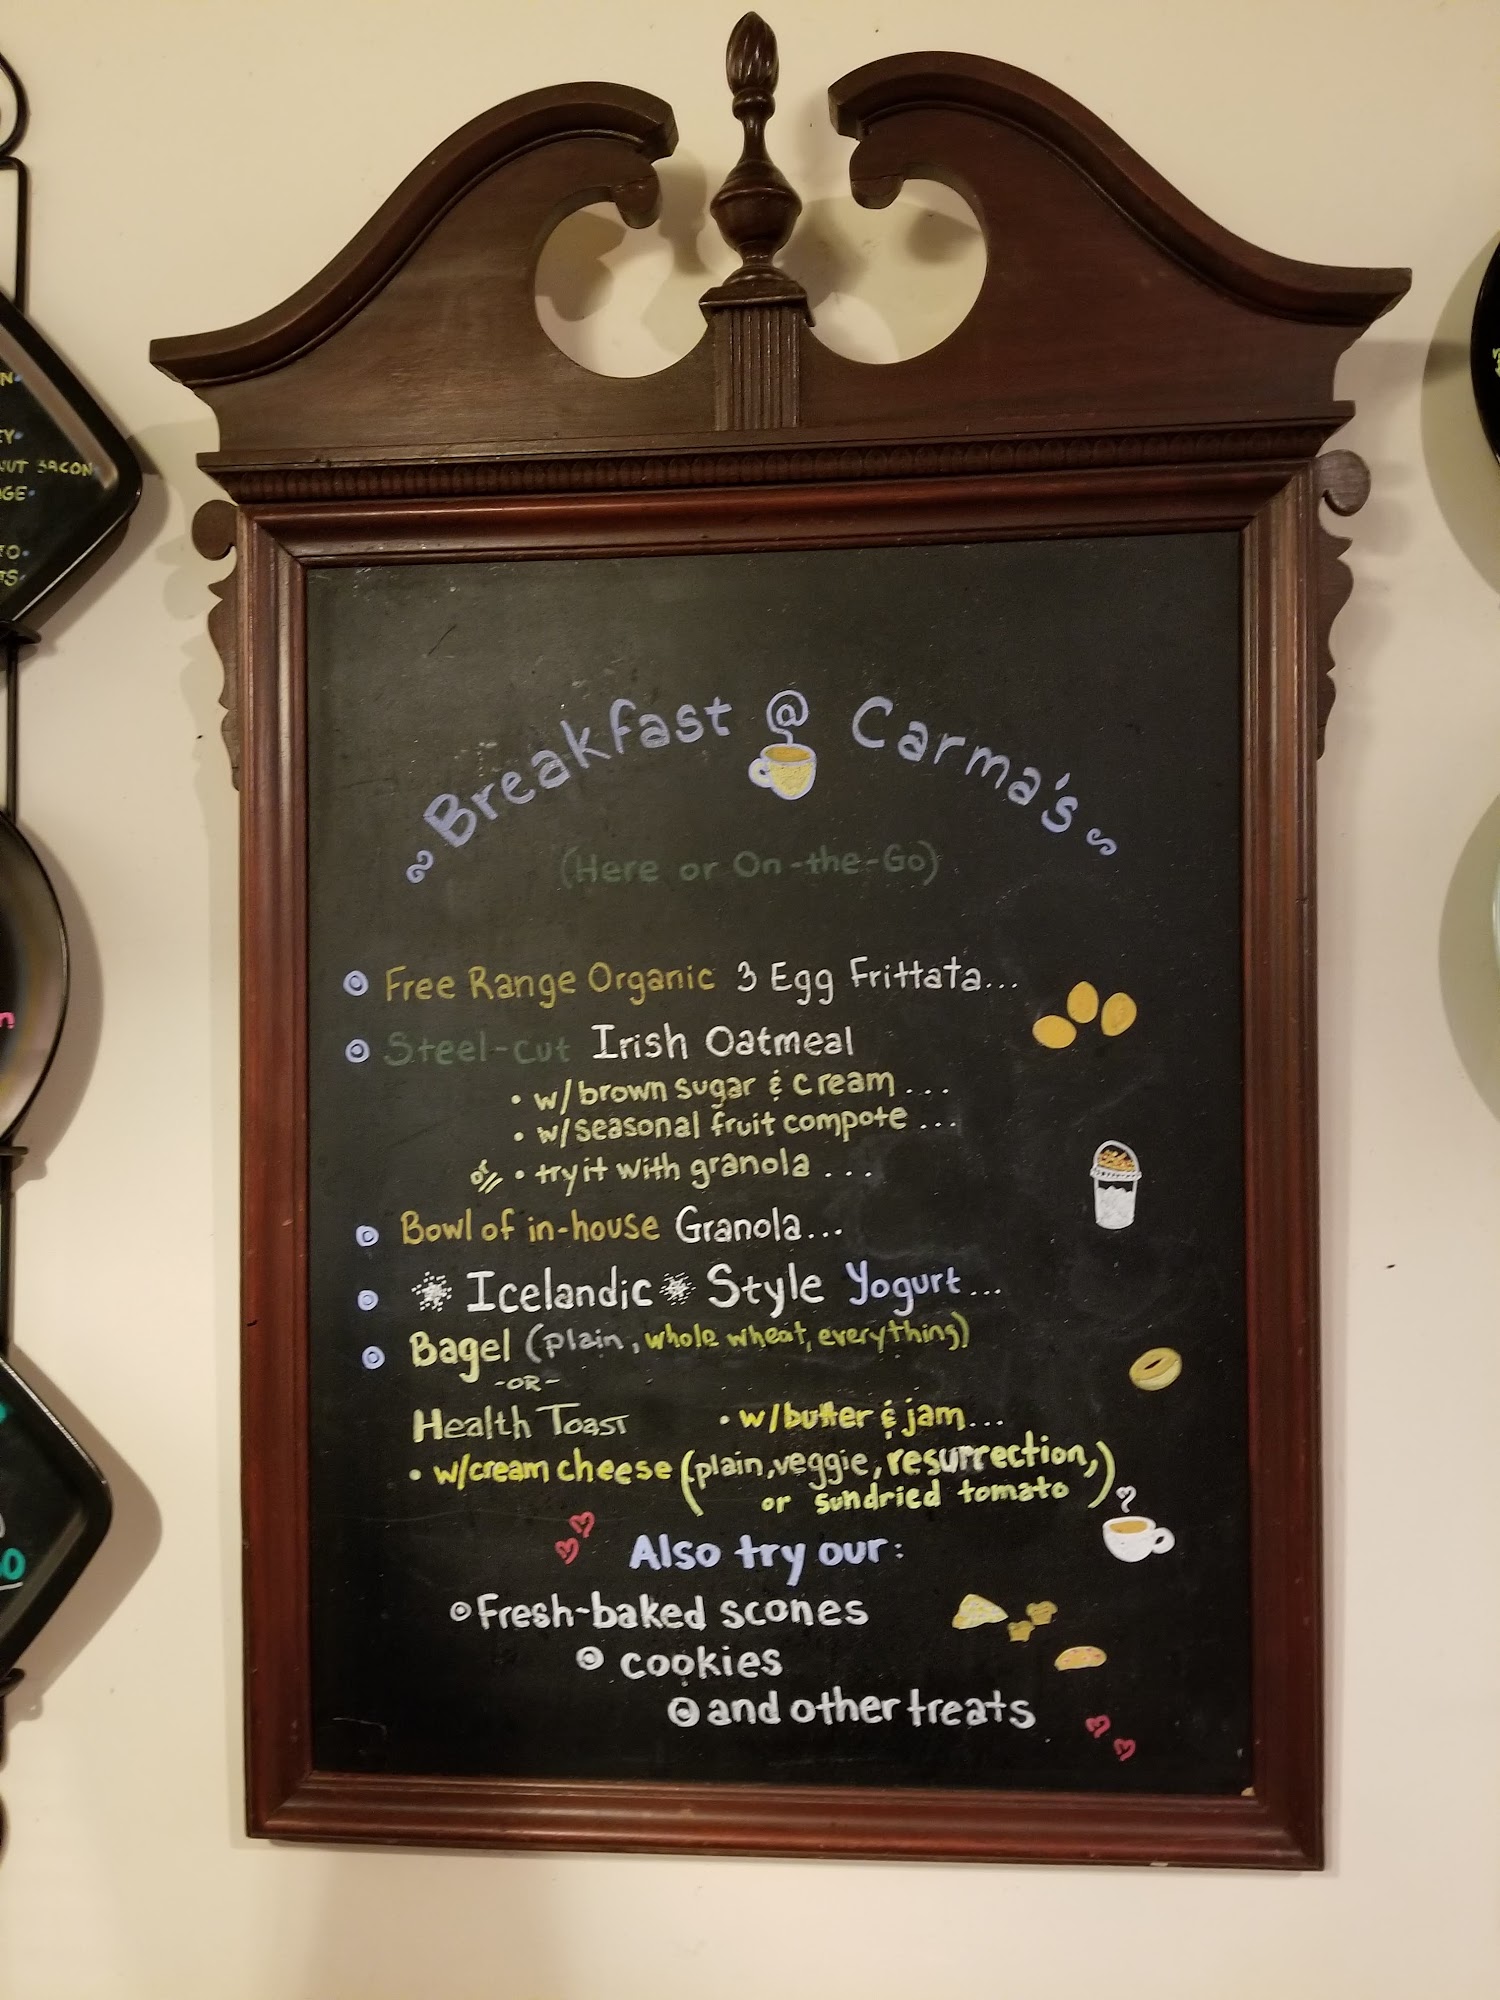 Breakfast @ Carma's
(Here or On-the-Go)
Free Range Organic 3 Egg Frittata...
Steel-cut Irish Oatmeal
• w/brown sugar & cream ...
• w/seasonal fruit compote ...
• try it with granola ...
Bowl of in-house Granola...
Icelandic Style Yogurt...
Bagel (plain, whole wheat, everything)
-OR-
Health Toast • w/butter & jam...
• w/cream cheese (plain, veggie, resurrection,
or sundried tomato)
Also try our:
Fresh-baked scones
cookies
and other treats
BACON